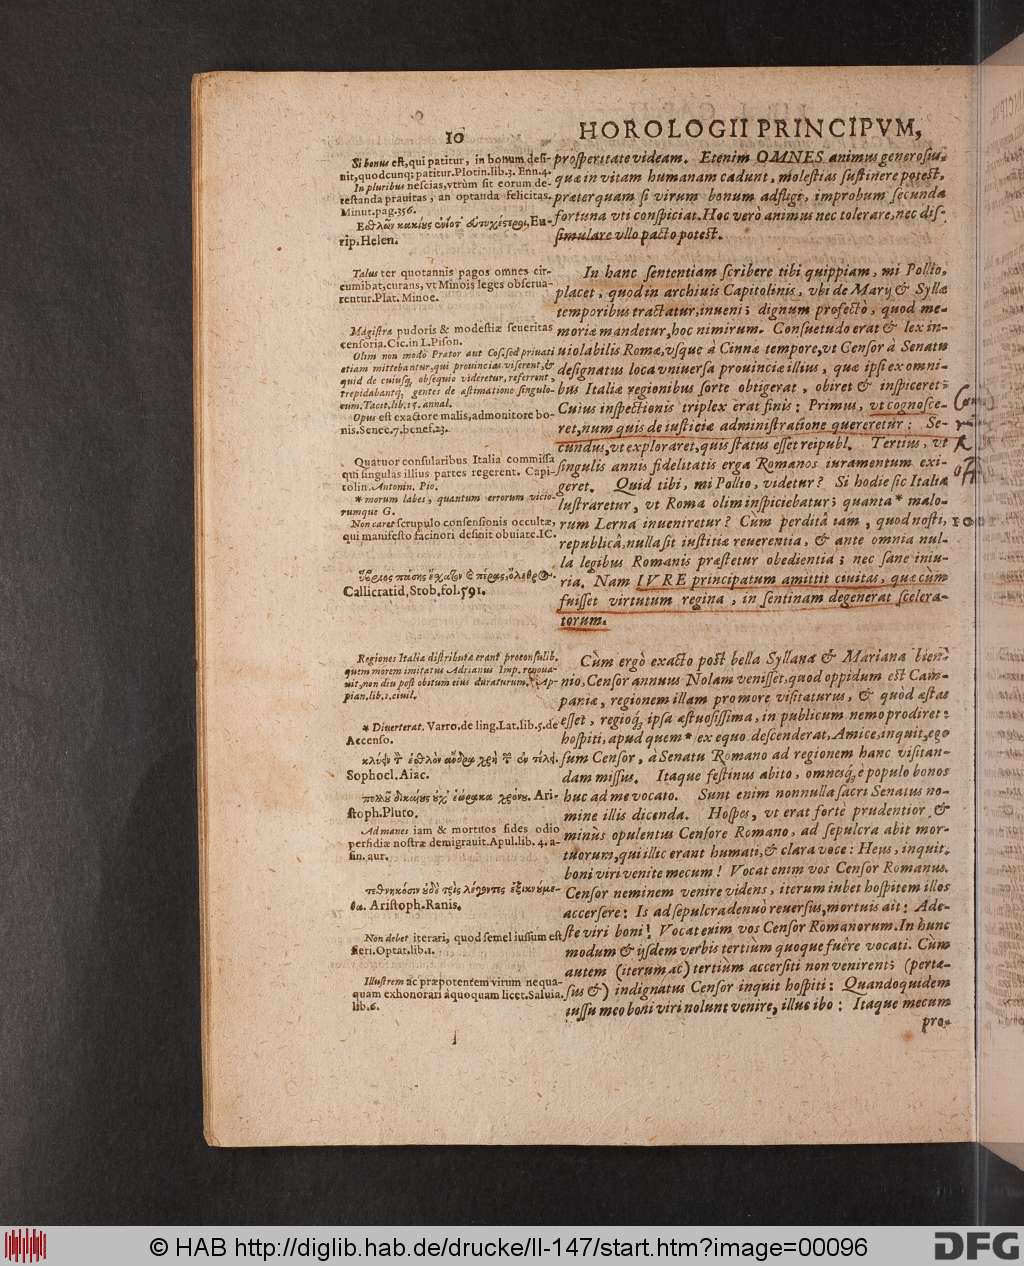 10
HOROLOGII PRINCIPVM,
Si bonus est, qui patitur, in bonum desi-
nit, quodcunq; patitur. Plotin. lib. 3. Enn. 4.
In pluribus nescias, vtrùm sit eorum de-
testanda prauitas, an optanda felicitas.
Minut. pag. 356.
Eurip. Helen.
Talus ter quotannis pagos omnes cir-
cumibat, curans, vt Minois leges obserua-
rentur. Plat. Minoe.
Magistra pudoris & modestiæ seueritas
censoria. Cic. in L. Pison.
Olim non modò Prætor aut Cos. sed priuati
etiam mittebantur, qui prouincias viserent, &
quid de cuiusq; obsequio videretur, referrent,
trepidabantq; gentes de æstimatione singulo-
rum. Tacit. lib. 15. annal.
Opus est exactore malis, admonitore bo-
nis. Senec. 7. benef. 23.
Quatuor consularibus Italia commissa
qui singulas illius partes regerent. Capi-
tolin. Antonin. Pio.
* morum labes, quantum errorum vicio-
rumque G.
Non caret scrupulo consensionis occultæ,
qui manifesto facinori desinit obuiare. IC.
Callicratid, Stob. fol. 591.
Regiones Italiæ distributæ erant proconsulib.
quem morem imitatus Adrianus Imp. renoua-
uit, non diu post obitum eius duraturum. Ap-
pian. lib. 1. ciuil.
* Diuerterat. Varro. de ling. Lat. lib. 5. de
Accenso.
Sophocl. Aiac.
Ari-
stoph. Pluto.
Ad manes iam & mortuos fides odio
perfidiæ nostræ demigrauit. Apul. lib. 4. a-
sin. aur.
Aristoph. Ranis.
Non debet iterari, quod semel iussum est
fieri. Optat. lib. 1.
Illustrem ac præpotentem virum nequa-
quam exhonorari à quoquam licet. Saluia.
lib. 6.
prosperitate videam. Etenim OMNES animus generosus,
quæ in vitam humanam cadunt, molestias sustinere potest,
præterquam si virum bonum adfligi, improbum secunda
fortuna vti conspiciat. Hoc verò animus nec tolerare, nec dis-
simulare vllo pacto potest.
In hanc sententiam scribere tibi quippiam, mi Pollio,
placet, quod in archiuis Capitolinis, vbi de Marij & Syllæ
temporibus tractatur, inueni; dignum profectò, quod me-
moriæ mandetur, hoc nimirum. Consuetudo erat & lex in-
uiolabilis Romæ, vsque à Cinnæ tempore, vt Censor à Senatu
designatus loca vniuersa prouinciæ illius, quæ ipsi ex omni-
bus Italiæ regionibus sorte obtigerat, obiret & inspiceret:
Cuius inspectionis triplex erat finis: Primus, vt cognosce-
ret, num quis de iusticiæ administratione quereretur: Se-
cundus, vt exploraret, quis status esset reipubl. Tertius, vt
singulis annis fidelitatis erga Romanos iuramentum exi-
geret. Quid tibi, mi Pollio, videtur? Si hodie sic Italia
lustraretur, vt Roma olim inspiciebatur; quanta * malo-
rum Lerna inueniretur? Cùm perditâ iam, quod nosti,
republicâ, nulla sit iustitiæ reuerentia, & ante omnia nul-
la legibus Romanis præstetur obedientia; nec sane iniu-
ria. Nam IVRE principatum amittit ciuitas, quæ cùm
fuisset virtutum regina, in sentinam degenerat scelera-
torum.
Cùm ergò exacto post bella Syllana & Mariana bien-
nio, Censor annuus Nolam venisset, quod oppidum est Cam-
paniæ, regionem illam pro more visitaturus, & quòd æstas
esset, regioq; ipsa æstuosissima, in publicum nemo prodiret:
hospiti, apud quem * ex equo descenderat, Amice, inquit, ego
sum Censor, à Senatu Romano ad regionem hanc visitan-
dam missus. Itaque festinus abito, omnesq; è populo bonos
huc ad me vocato. Sunt enim nonnulla sacri Senatus no-
mine illis dicenda. Hospes, vt erat fortè prudentior, &
minùs opulentus Censore Romano, ad sepulcra abit mor-
tuorum, qui illic erant humati, & clara voce: Heus, inquit,
boni viri venite mecum! Vocat enim vos Censor Romanus.
Censor neminem venire videns, iterum iubet hospitem illos
accersere: Is ad sepulcra denuò reuersus, mortuis ait: Ade-
ste viri boni! Vocat enim vos Censor Romanorum. In hunc
modum & ijsdem verbis tertium quoque fuêre vocati. Cùm
autem (iterum ac) tertiùm accersiti non venirent; (pertæ-
sus &) indignatus Censor inquit hospiti: Quandoquidem
iussu meo boni viri nolunt venire, illuc ibo: Itaque mecum
pro-
© HAB http://diglib.hab.de/drucke/ll-147/start.htm?image=00096
DFG